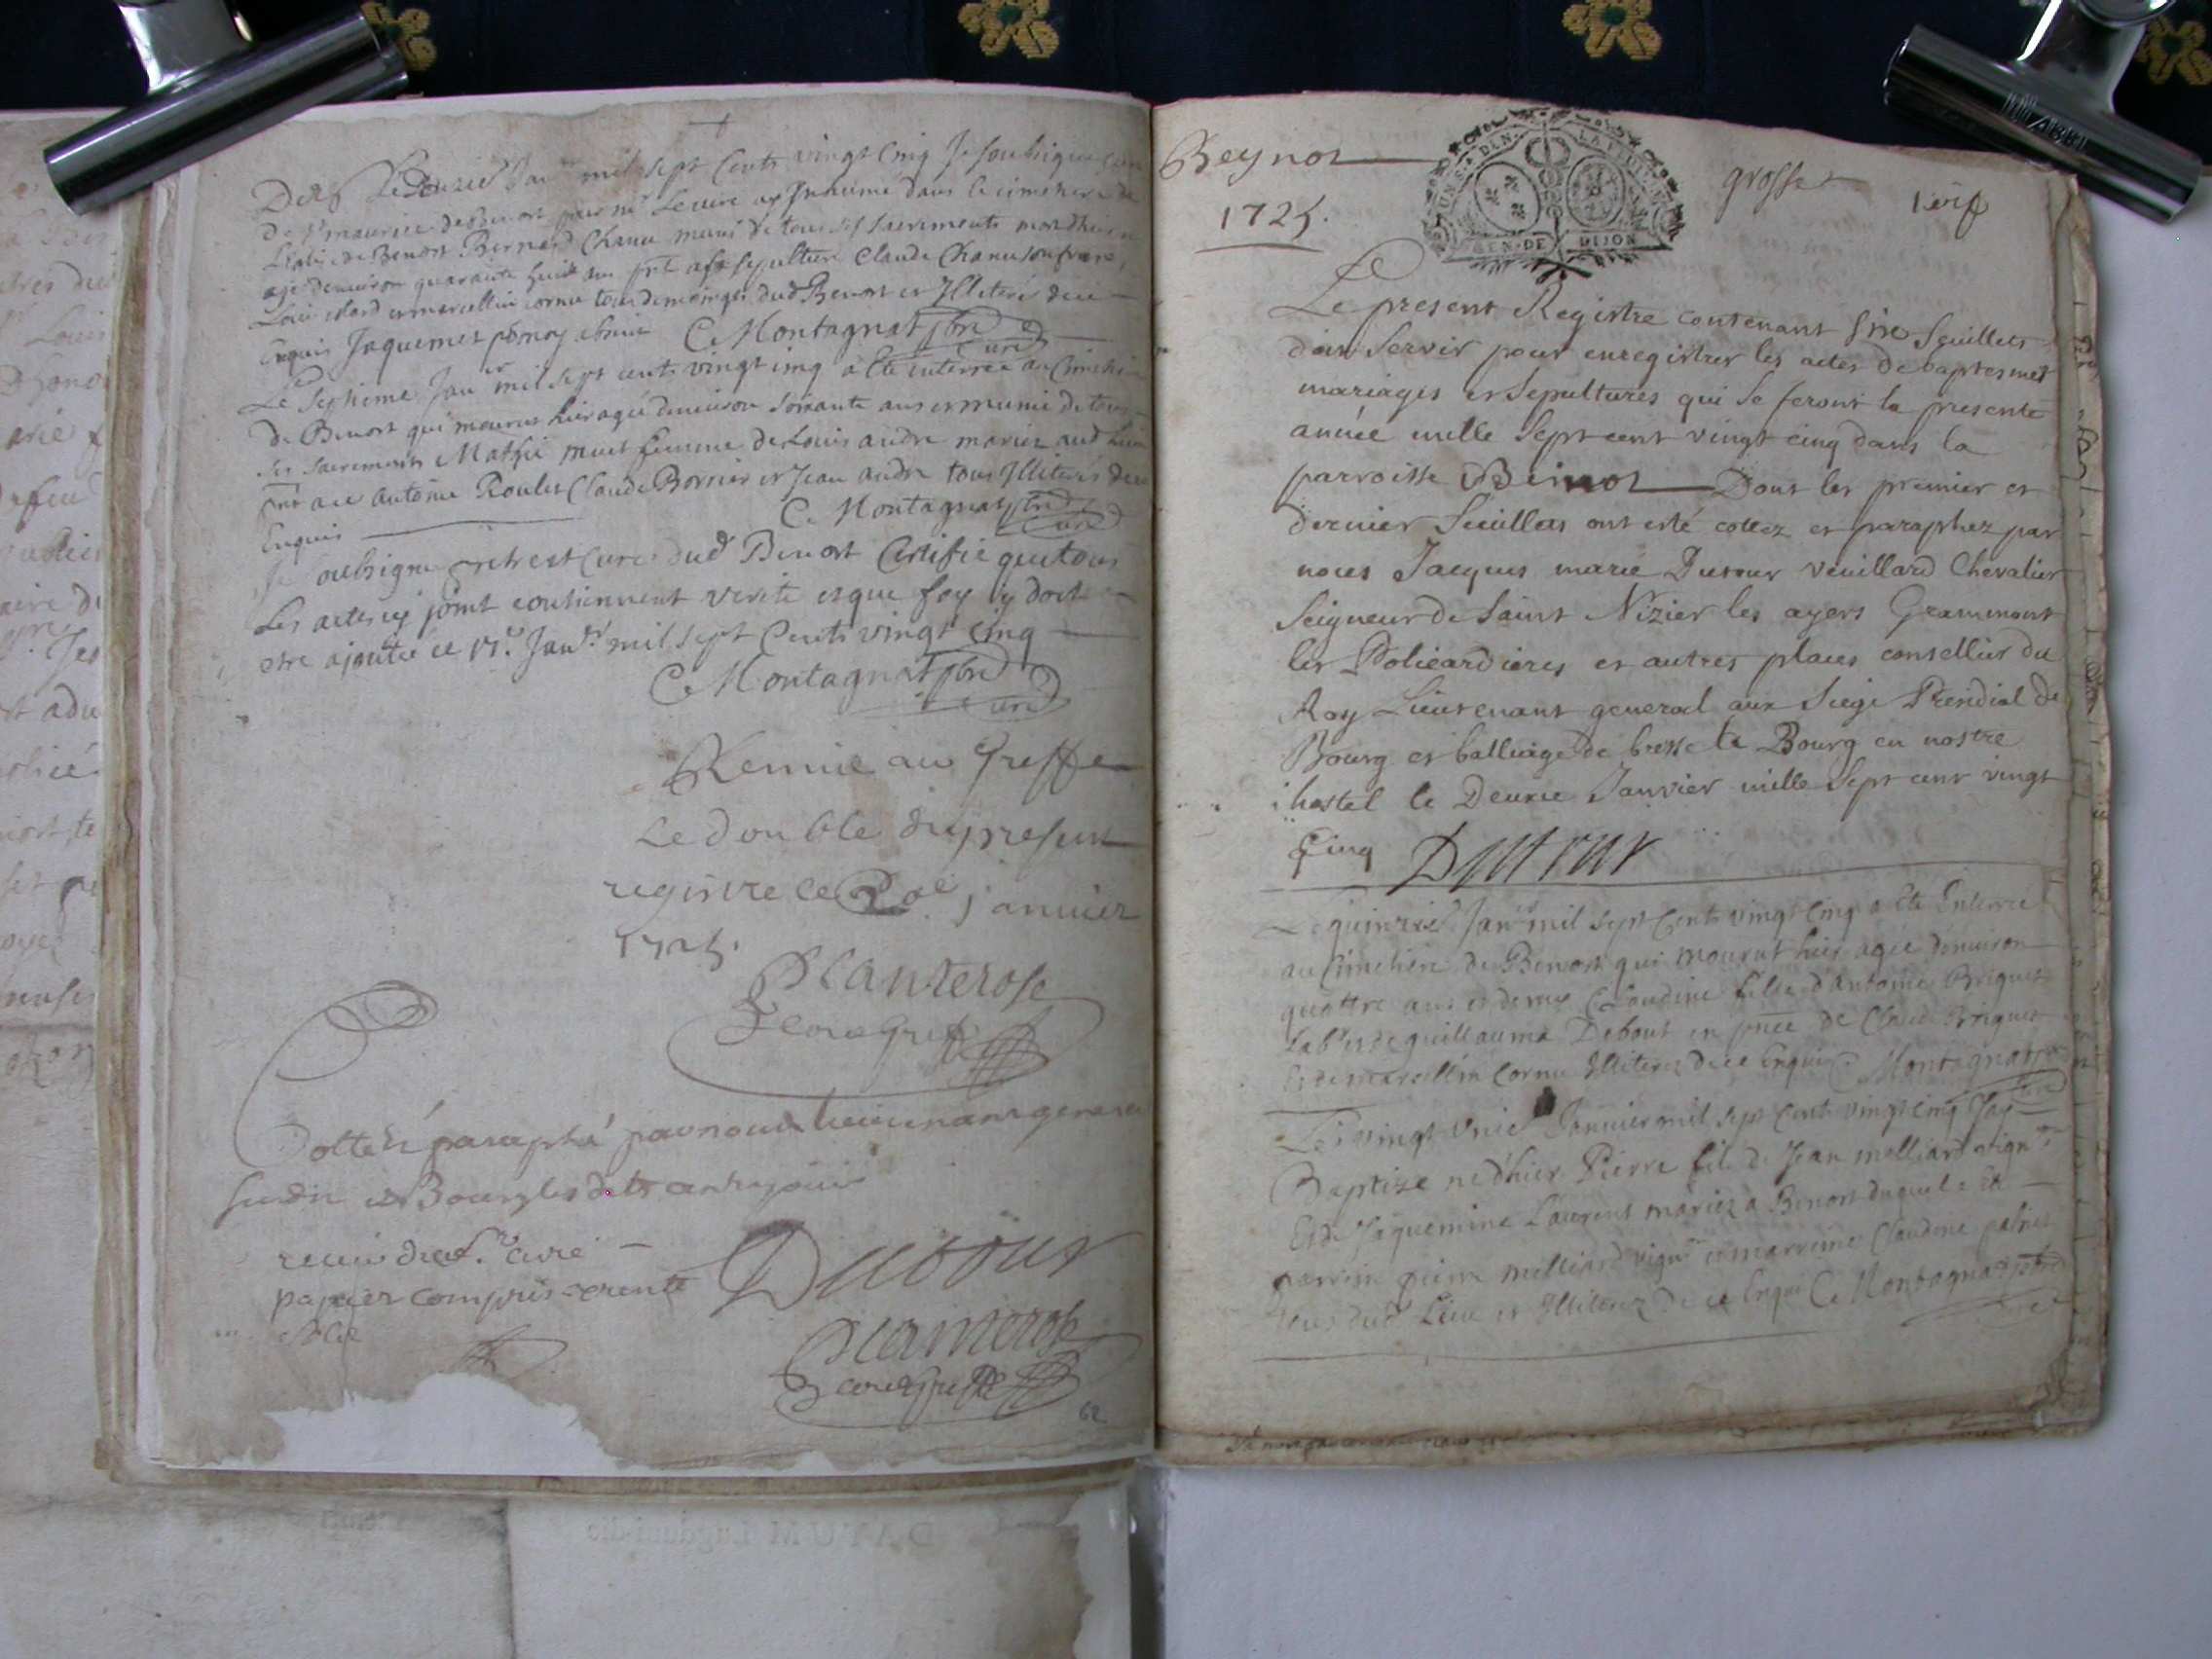 Le Deuxie Janr mil sept Cents vingt Cinq Je soubsigné
de St maurice de Beinost pour mr Le cure ay Inhumé dans le cimetiere de
L'eglise de Benost Bernard Chanu muni de tous ses sacrements mort hier
agé denuiron quarante huit ans pnt a sa sepulture Claude Chanu son frere,
Louis et marcellin cornu tous demoings dud Benost et Illiteré de ce
Enquis Jaquemet C. Montagnat pbre
curé
Le Septieme Janer mil sept cents vingt cinq a Ete enterrée au Cimetiere
de Benost qui mourut hier agée denuiron soixante ans et munie de tous
ses sacrements Mathie muet femme de Louis andre mariez aud lieu
pnt a ce antoine Roulet Claude Bornier et Jean andre tous Illiterés de ce
Enquis
C. Montagnat pbre
curé
Je soubsigne pretre et Curé dud Benost Certifie que tous
Les actes cy joint contiennent verité et que foy y doit
etre ajoutée ce 17e. Janer mil sept Cents vingt cinq
C. Montagnat pbre
curé
Remie au Greffe
Le double du present
registre ce 20e janvier
1725.
Planterose
Cotté et paraphé par nous Lieutenant general
susdit a Bourg les dits an et jour
receu du sr. curé
papier compris trente
Dutour
Planterose
62
Beynost
grosse
1er
1725.
GEN. DE DIJON
Le present Registre contenant six feuillets
doit servir pour enregistrer les actes de baptesmes
mariages et sepultures qui se feront la presente
année mille sept cent vingt cinq dans la
parroisse de Beinost Dont les premier et
dernier feuillets ont esté cottez et paraphez par
nous Jacques marie Dutour Vuillard Chevalier
Seigneur de Saint Nizier les ayers Grammont
les Policardieres et autres places conseiller du
Roy Lieutenant general au Siege Presidial de
Bourg et balliage de bresse a Bourg en nostre
hostel le Deuxie Janvier mille sept cent vingt
Cinq Dutour
Le quinzie Janer mil sept Cents vingt Cinq a Ete Enterrée
au Cimetiere de Benost qui mourut hier agée denuiron
quattre ans et demy Claudine fille d'antoine Briquet
Labr et de guillauma Debout en pnce de Claude Briquet
Et de marcellin Cornu Illiterez de ce Enquis C. Montagnat pbre
Le vingt unie Janvier mil sept Cents vingt cinq J'ay
Baptizé né d'hier Pierre fils de Jean melliard vigneron
Et de Jaquemine Laurent mariez a Benost duquel a Eté
parrein pierre milliard vignr et marreine Claudine
tous dud Lieu et Illiterez de ce Enquis C. Montagnat pbre